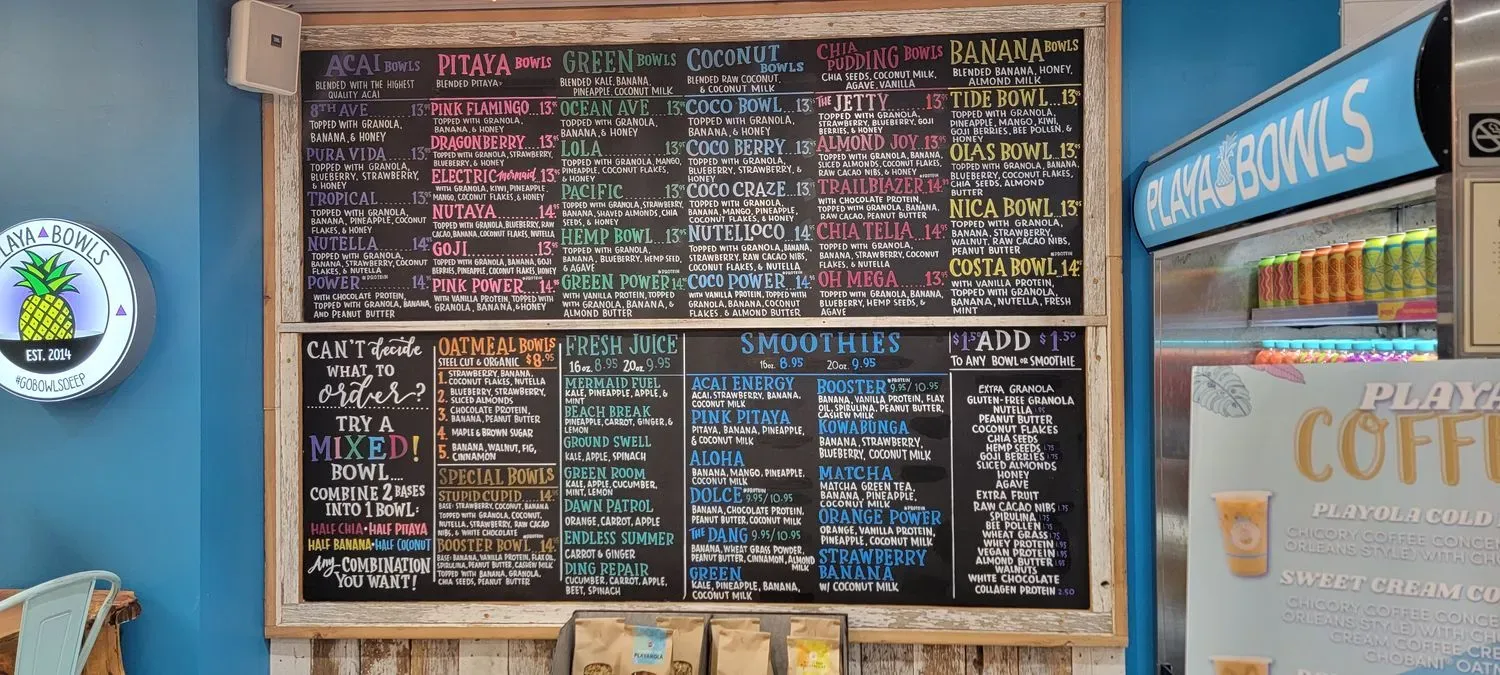 PLAYA BOWLS
EST. 2014
#GOBOWLSDEEP
ACAI BOWLS
BLENDED WITH THE HIGHEST
QUALITY ACAI
8TH AVE......13.95
TOPPED WITH GRANOLA,
BANANA, & HONEY
PURA VIDA......13.95
TOPPED WITH GRANOLA,
BLUEBERRY, STRAWBERRY,
& HONEY
TROPICAL......13.95
TOPPED WITH GRANOLA,
BANANA, PINEAPPLE, COCONUT
FLAKES, & HONEY
NUTELLA......14.95
TOPPED WITH GRANOLA,
BANANA, STRAWBERRY, COCONUT
FLAKES, & NUTELLA
POWER +PROTEIN......14.95
WITH CHOCOLATE PROTEIN,
TOPPED WITH GRANOLA, BANANA,
AND PEANUT BUTTER
PITAYA BOWLS
BLENDED PITAYA
PINK FLAMINGO...13.95
TOPPED WITH GRANOLA,
BANANA, & HONEY
DRAGONBERRY...13.95
TOPPED WITH GRANOLA, STRAWBERRY,
BLUEBERRY, & HONEY
ELECTRIC mermaid 13.95
WITH GRANOLA, KIWI, PINEAPPLE,
MANGO, COCONUT FLAKES, & HONEY
NUTAYA......14.95
TOPPED WITH GRANOLA, BLUEBERRY, RAW
CACAO, BANANA, COCONUT FLAKES, NUTELLA
GOJI......13.95
TOPPED WITH GRANOLA, BANANA, GOJI
BERRIES, PINEAPPLE, COCONUT FLAKES, HONEY
PINK POWER +PROTEIN..14.95
WITH VANILLA PROTEIN, TOPPED WITH
GRANOLA, BANANA, & HONEY
GREEN BOWLS
BLENDED KALE, BANANA,
PINEAPPLE, COCONUT MILK
OCEAN AVE..13.95
TOPPED WITH GRANOLA,
BANANA, & HONEY
LOLA......13.95
TOPPED WITH GRANOLA, MANGO,
PINEAPPLE, COCONUT FLAKES,
& HONEY
PACIFIC......13.95
TOPPED WITH GRANOLA, STRAWBERRY,
BANANA, SHAVED ALMONDS, CHIA
SEEDS, & HONEY
HEMP BOWL...13.95
TOPPED WITH GRANOLA,
BANANA, BLUEBERRY, HEMP SEED,
& AGAVE
GREEN POWER +PROTEIN 14.95
WITH VANILLA PROTEIN, TOPPED
WITH GRANOLA, BANANA, &
ALMOND BUTTER
COCONUT BOWLS
BLENDED RAW COCONUT,
& COCONUT MILK
COCO BOWL...13.95
TOPPED WITH GRANOLA,
BANANA, & HONEY
COCO BERRY..13.95
TOPPED WITH GRANOLA,
STRAWBERRY, BLUEBERRY,
& HONEY
COCO CRAZE..13.95
TOPPED WITH GRANOLA,
BANANA, MANGO, PINEAPPLE,
COCONUT FLAKES, & HONEY
NUTELLOCO..14.95
TOPPED WITH GRANOLA, BANANA,
STRAWBERRY, RAW CACAO NIBS,
COCONUT FLAKES, & NUTELLA
COCO POWER +PROTEIN..14.95
WITH VANILLA PROTEIN, TOPPED WITH
GRANOLA, BANANA, COCONUT
FLAKES, & ALMOND BUTTER
CHIA PUDDING BOWLS
CHIA SEEDS, COCONUT MILK,
AGAVE, VANILLA
THE JETTY......13.95
TOPPED WITH GRANOLA,
STRAWBERRY, BLUEBERRY, GOJI
BERRIES & HONEY
ALMOND JOY.13.95
TOPPED WITH GRANOLA, BANANA,
SLICED ALMONDS, COCONUT FLAKES,
RAW CACAO NIBS, & HONEY
TRAILBLAZER +PROTEIN 14.95
WITH CHOCOLATE PROTEIN,
TOPPED WITH GRANOLA, BANANA,
RAW CACAO, PEANUT BUTTER
CHIA TELIA...14.95
TOPPED WITH GRANOLA,
BANANA, STRAWBERRY, COCONUT
FLAKES & NUTELLA
OH MEGA......13.95
TOPPED WITH GRANOLA, BANANA,
BLUEBERRY, HEMP SEEDS, &
AGAVE
BANANA BOWLS
BLENDED BANANA, HONEY,
ALMOND MILK
TIDE BOWL...13.95
TOPPED WITH GRANOLA,
PINEAPPLE, MANGO, KIWI,
GOJI BERRIES, BEE POLLEN, &
HONEY
OLAS BOWL..13.95
TOPPED WITH GRANOLA, BANANA,
BLUEBERRY, COCONUT FLAKES,
CHIA SEEDS, ALMOND
BUTTER
NICA BOWL..13.95
TOPPED WITH GRANOLA,
BANANA, STRAWBERRY,
WALNUT, RAW CACAO NIBS,
PEANUT BUTTER
COSTA BOWL +PROTEIN 14.95
WITH VANILLA PROTEIN,
TOPPED WITH GRANOLA,
BANANA, NUTELLA, FRESH
MINT
CAN'T decide
WHAT TO
order?
TRY A
MIXED!
BOWL....
COMBINE 2 BASES
INTO 1 BOWL:
HALF CHIA•HALF PITAYA
HALF BANANA•HALF COCONUT
Any COMBINATION
YOU WANT!
OATMEAL BOWLS
STEEL CUT & ORGANIC $8.95
1. STRAWBERRY, BANANA,
COCONUT FLAKES, NUTELLA
2. BLUEBERRY, STRAWBERRY,
SLICED ALMONDS
3. CHOCOLATE PROTEIN,
BANANA, PEANUT BUTTER
4. MAPLE & BROWN SUGAR
5. BANANA, WALNUT, FIG,
CINNAMON
SPECIAL BOWLS
STUPID CUPID....14.95
BASE: STRAWBERRY, COCONUT, BANANA
TOPPED WITH GRANOLA, COCONUT,
NUTELLA, STRAWBERRY, RAW CACAO
NIBS, & WHITE CHOCOLATE
BOOSTER BOWL +PROTEIN .14.95
BASE: BANANA, VANILLA PROTEIN, FLAX OIL,
SPIRULINA, PEANUT BUTTER, CASHEW MILK
TOPPED WITH BANANA, GRANOLA,
CHIA SEEDS, PEANUT BUTTER
FRESH JUICE
16oz. 8.95 20oz 9.95
MERMAID FUEL
KALE, PINEAPPLE, APPLE, &
MINT
BEACH BREAK
PINEAPPLE, CARROT, GINGER, &
LEMON
GROUND SWELL
KALE, APPLE, SPINACH
GREEN ROOM
KALE, APPLE, CUCUMBER,
MINT, LEMON
DAWN PATROL
ORANGE, CARROT, APPLE
ENDLESS SUMMER
CARROT & GINGER
DING REPAIR
CUCUMBER, CARROT, APPLE,
BEET, SPINACH
SMOOTHIES
16oz. 8.95 20oz. 9.95
ACAI ENERGY
ACAI, STRAWBERRY, BANANA,
COCONUT MILK
PINK PITAYA
PITAYA, BANANA, PINEAPPLE,
& COCONUT MILK
ALOHA
BANANA, MANGO, PINEAPPLE,
COCONUT MILK
DOLCE +PROTEIN 9.95/10.95
BANANA, CHOCOLATE PROTEIN,
PEANUT BUTTER, COCONUT MILK
THE DANG 9.95/10.95
BANANA, WHEAT GRASS POWDER,
PEANUT BUTTER, CINNAMON, ALMOND
MILK
GREEN
KALE, PINEAPPLE, BANANA,
COCONUT MILK
BOOSTER +PROTEIN 9.95/10.95
BANANA, VANILLA PROTEIN, FLAX
OIL, SPIRULINA, PEANUT BUTTER,
CASHEW MILK
KOWABUNGA
BANANA, STRAWBERRY,
BLUEBERRY, COCONUT MILK
MATCHA
MATCHA GREEN TEA,
BANANA, PINEAPPLE,
COCONUT MILK
ORANGE POWER
ORANGE, VANILLA PROTEIN,
PINEAPPLE, COCONUT MILK
STRAWBERRY
BANANA
W/ COCONUT MILK
$1.50 ADD $1.50
TO ANY BOWL OR SMOOTHIE
EXTRA GRANOLA
GLUTEN-FREE GRANOLA
NUTELLA 1.95
PEANUT BUTTER
COCONUT FLAKES
CHIA SEEDS
HEMP SEEDS 1.75
GOJI BERRIES 1.75
SLICED ALMONDS
HONEY
AGAVE
EXTRA FRUIT
RAW CACAO NIBS 1.75
SPIRULINA 1.75
BEE POLLEN 1.75
WHEAT GRASS 1.75
WHEY PROTEIN 1.95
VEGAN PROTEIN 1.95
ALMOND BUTTER 1.95
WALNUTS
WHITE CHOCOLATE
COLLAGEN PROTEIN 2.50
PLAYA BOWLS
PLAYA
COFF
PLAYOLA COLD
CHICORY COFFEE CONCE
ORLEANS STYLE) WITH CH
SWEET CREAM CO
CHICORY COFFEE CONCE
ORLEANS STYLE) WITH CH
CREAM COFFEE CRE
CHOBANI® OATM
PLAYANOLA